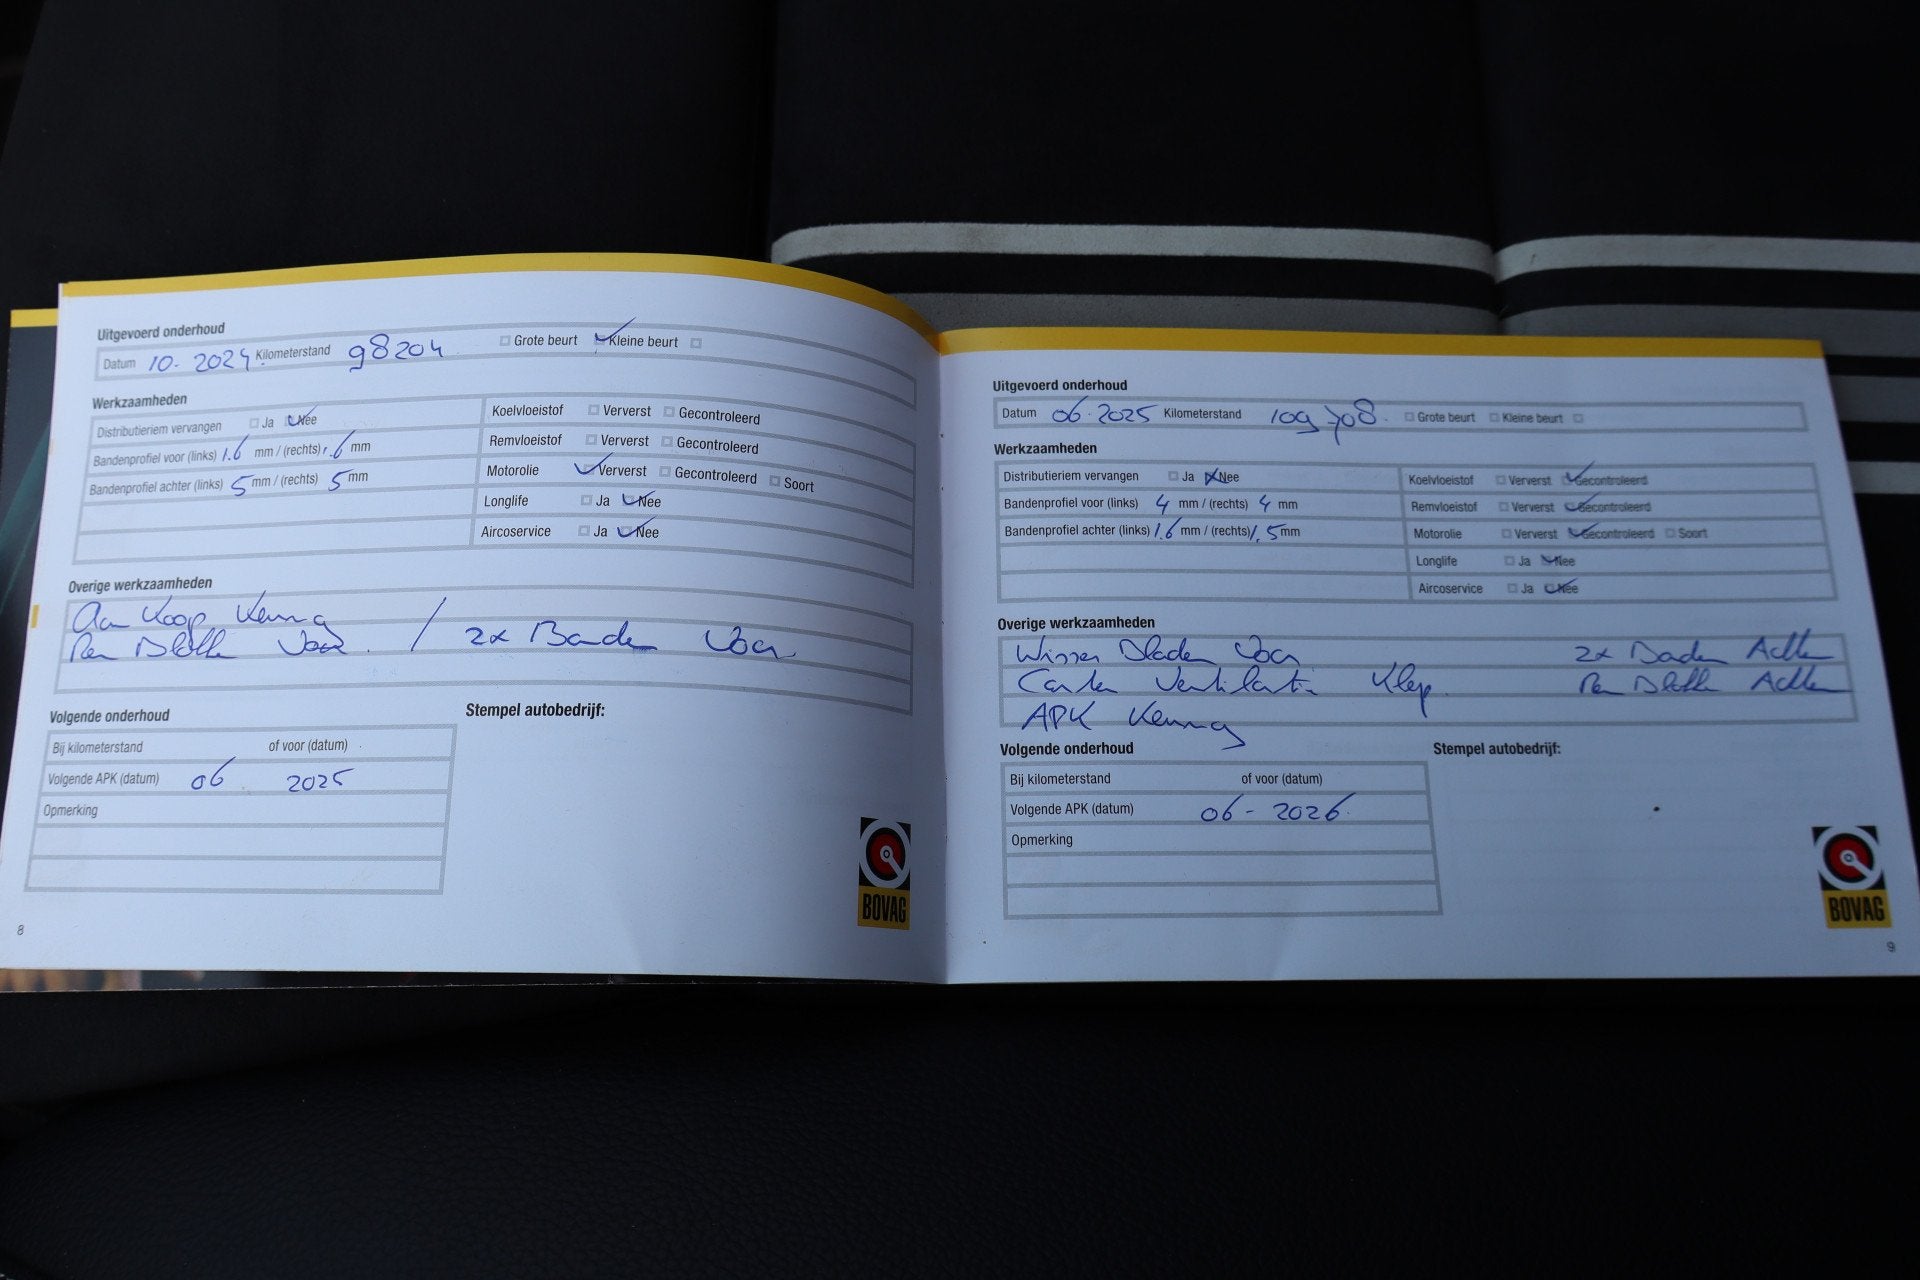 Uitgevoerd onderhoud
Datum 10. 2024. Kilometerstand 98204 Grote beurt Kleine beurt
Werkzaamheden
Distributieriem vervangen Ja Nee
Bandenprofiel voor (links) 1.6 mm / (rechts) 1.6 mm
Bandenprofiel achter (links) 5 mm / (rechts) 5 mm
Koelvloeistof Ververst Gecontroleerd
Remvloeistof Ververst Gecontroleerd
Motorolie Ververst Gecontroleerd Soort
Longlife Ja Nee
Aircoservice Ja Nee
Overige werkzaamheden
Aan Koop Keuring
Rem Blokken Voor. / 2x Banden Voor
Volgende onderhoud
Bij kilometerstand of voor (datum)
Volgende APK (datum) 06. 2025
Opmerking
Stempel autobedrijf:
BOVAG
8
Uitgevoerd onderhoud
Datum 06. 2025 Kilometerstand 109708. Grote beurt Kleine beurt
Werkzaamheden
Distributieriem vervangen Ja Nee
Bandenprofiel voor (links) 4 mm / (rechts) 4 mm
Bandenprofiel achter (links) 1.6 mm / (rechts) 1.5 mm
Koelvloeistof Ververst Gecontroleerd
Remvloeistof Ververst Gecontroleerd
Motorolie Ververst Gecontroleerd Soort
Longlife Ja Nee
Aircoservice Ja Nee
Overige werkzaamheden
Wisser Bladen Voor 2x Banden Achter
Carter Ventilatie Klep. Rem Blokken Achter
APK Keuring
Volgende onderhoud
Bij kilometerstand of voor (datum)
Volgende APK (datum) 06 - 2026.
Opmerking
Stempel autobedrijf:
BOVAG
9